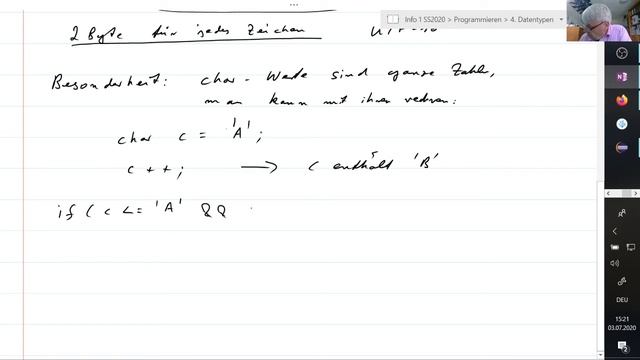 ...
Info 1 SS2020 > Programmieren > 4. Datentypen
2 Byte für jedes Zeichen UTF-16
Besonderheit: char-Werte sind ganze Zahlen,
man kann mit ihnen rechnen:
char c = 'A';
c++; → c enthält 'B'
if ( c <= 'A' &&
DEU
15:21
03.07.2020
2